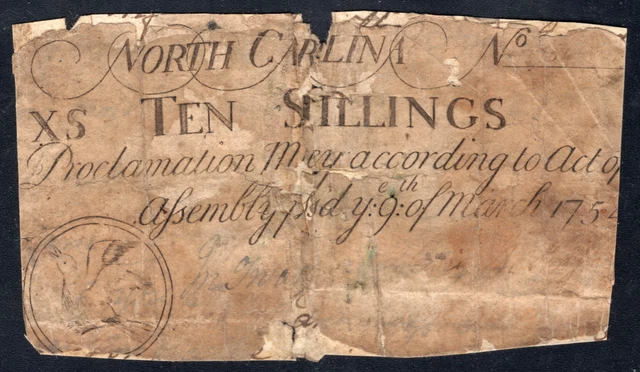 NORTH CARLINA No
XS TEN SHILLINGS
Proclamation Mey according to Act of
Assembly passd ye: 9th: of March 1754